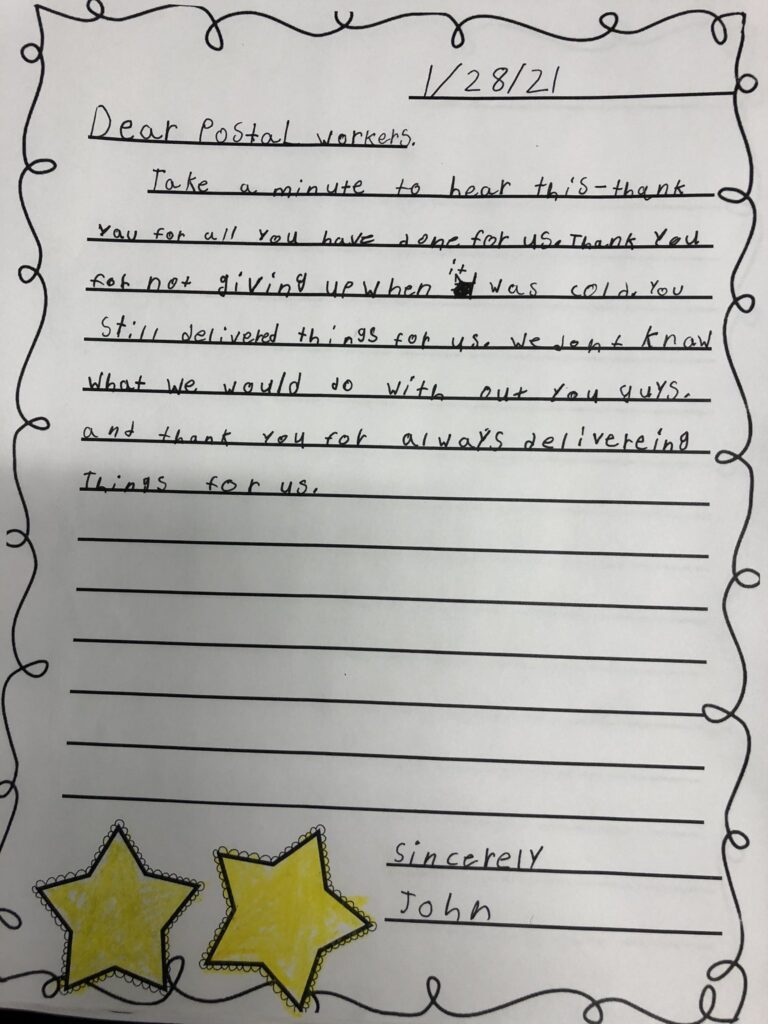 1/28/21
Dear Postal workers.
Take a minute to hear this-thank
you for all you have done for us. Thank you
for not giving up when it was cold. You
still delivered things for us. We dont know
what we would do with out you guys.
and thank you for always delivereing
things for us.
Sincerely
John